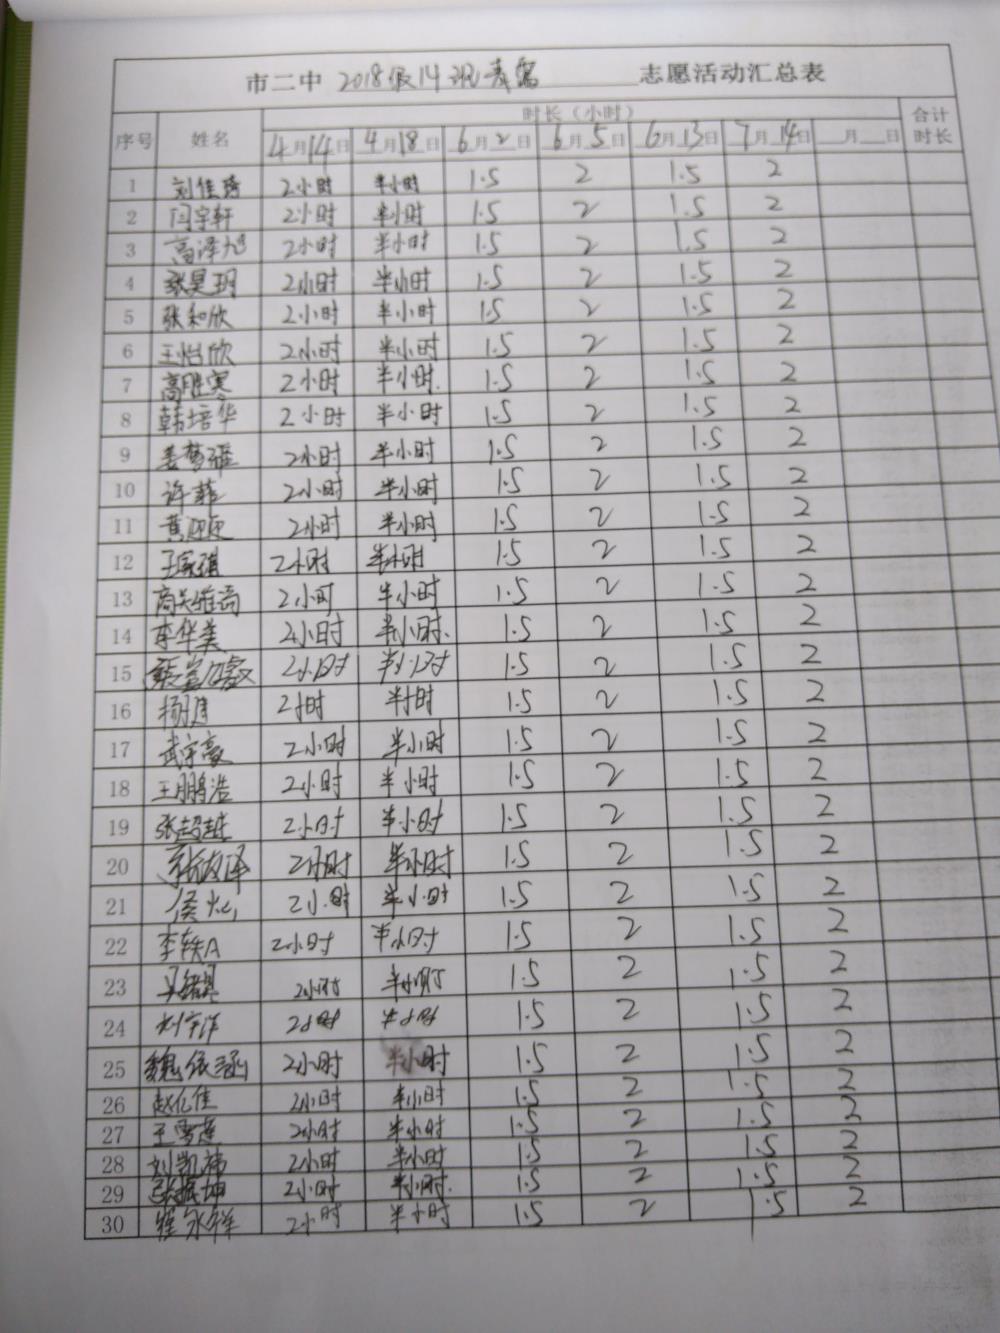 市二中 2018级14班 志愿活动汇总表
序号 姓名 时长(小时) 合计时长
4月14日 4月18日 6月2日 6月5日 6月13日 7月14日 月 日
1 刘佳琦 2小时 半小时 1.5 2 1.5 2
2 闫宇轩 2小时 半小时 1.5 2 1.5 2
3 高泽旭 2小时 半小时 1.5 2 1.5 2
4 张昊玥 2小时 半小时 1.5 2 1.5 2
5 张和欣 2小时 半小时 1.5 2 1.5 2
6 王怡欣 2小时 半小时 1.5 2 1.5 2
7 高胜寒 2小时 半小时. 1.5 2 1.5 2
8 韩培华 2小时 半小时 1.5 2 1.5 2
9 姜梦雅 2小时 半小时 1.5 2 1.5 2
10 许菲 2小时 半小时 1.5 2 1.5 2
11 黄 2小时 半小时 1.5 2 1.5 2
12 王家琪 2小时 半小时 1.5 2 1.5 2
13 商关雎高 2小时 半小时 1.5 2 1.5 2
14 李华美 2小时 半小时. 1.5 2 1.5 2
15 2小时 半小时 1.5 2 1.5 2
16 杨 2小时 半小时 1.5 2 1.5 2
17 武宇豪 2小时 半小时 1.5 2 1.5 2
18 王鹏浩 2小时 半小时 1.5 2 1.5 2
19 张超越 2小时 半小时 1.5 2 1.5 2
20 2小时 半小时 1.5 2 1.5 2
21 侯 2小时 半小时 1.5 2 1.5 2
22 李轶A 2小时 半小时 1.5 2 1.5 2
23 2小时 半小时 1.5 2 1.5 2
24 刘宇洋 2小时 半小时 1.5 2 1.5 2
25 魏依涵 2小时 半小时 1.5 2 1.5 2
26 赵亿佳 2小时 半小时 1.5 2 1.5 2
27 王雪莲 2小时 半小时 1.5 2 1.5 2
28 刘凯祎 2小时 半小时 1.5 2 1.5 2
29 张振坤 2小时 半小时. 1.5 2 1.5 2
30 崔永祥 2小时 半小时 1.5 2 1.5 2